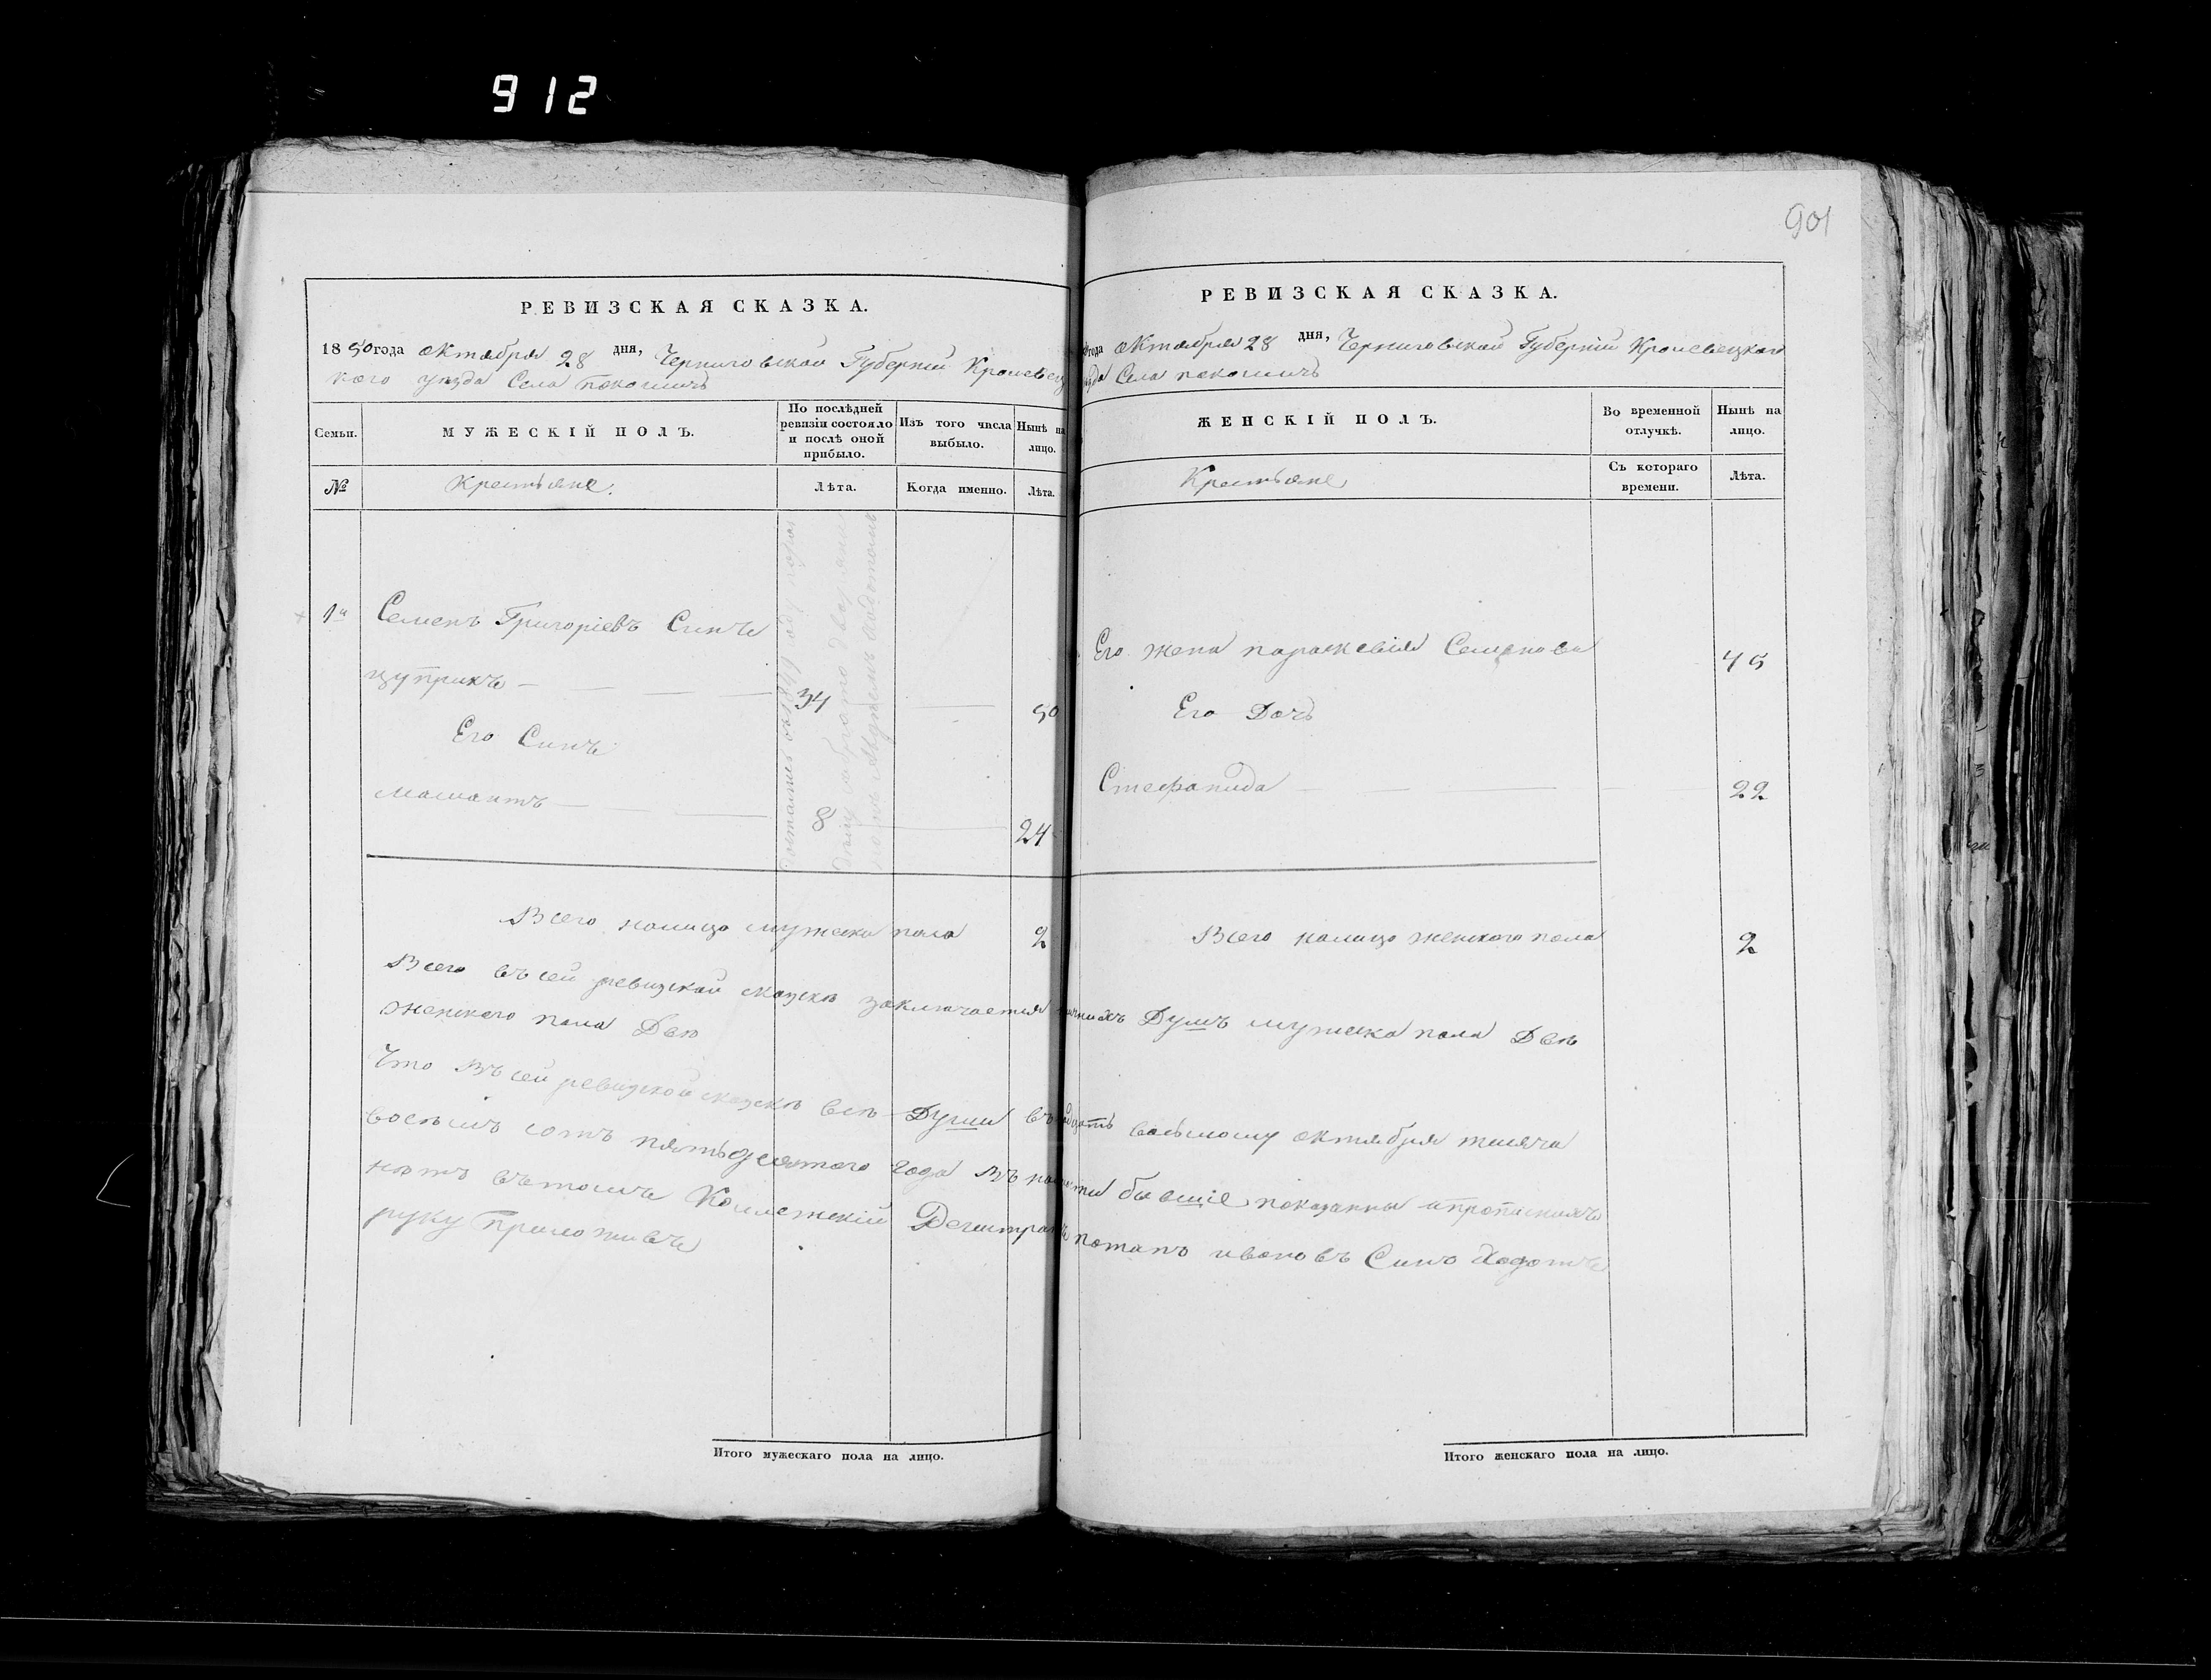 912
901
РЕВИЗСКАЯ СКАЗКА.
1850 года октября 28 дня, Черниговской Губернiи Кролевец
кого уезда Села Покошичъ
Семьи.
МУЖЕСКІЙ ПОЛЪ.
По послѣдней ревизіи состояло и послѣ оной прибыло.
Изъ того числа выбыло.
Нынѣ на лицо.
№
Крестьяне.
Лѣта.
Когда именно.
Лѣта.
1й Семенъ Григоріевъ Синъ
цуприкъ 34 50
Его Синъ
8 24
Всего налицо мужеска пола 2
РЕВИЗСКАЯ СКАЗКА.
года октября 28 дня, Черниговской Губерніи Кролевецкого
Села покошичъ
ЖЕНСКІЙ ПОЛЪ.
Во временной отлучкѣ.
Нынѣ на лицо.
Крестьяне
Съ котораго времени.
Лѣта.
Его жена параскевія Семенова 45
Его Дочъ
Стефанида 22
Всего налицо женского пола 2
Всего въ сей ревизской сказкѣ заключается Душъ мужеска пола Двѣ
женского пола Двѣ
Что въ сей ревизской сказкѣ всѣ Души въ осьмому октября тисяча
восѣмъ сотъ пятьдесятого года въ бывшіе показанны
нѣтъ въ томъ Колежскій Регистраторъ потапъ ивановъ Синъ Ходотъ
руку Приложивъ
Итого мужескаго пола на лицо.
Итого женскаго пола на лицо.